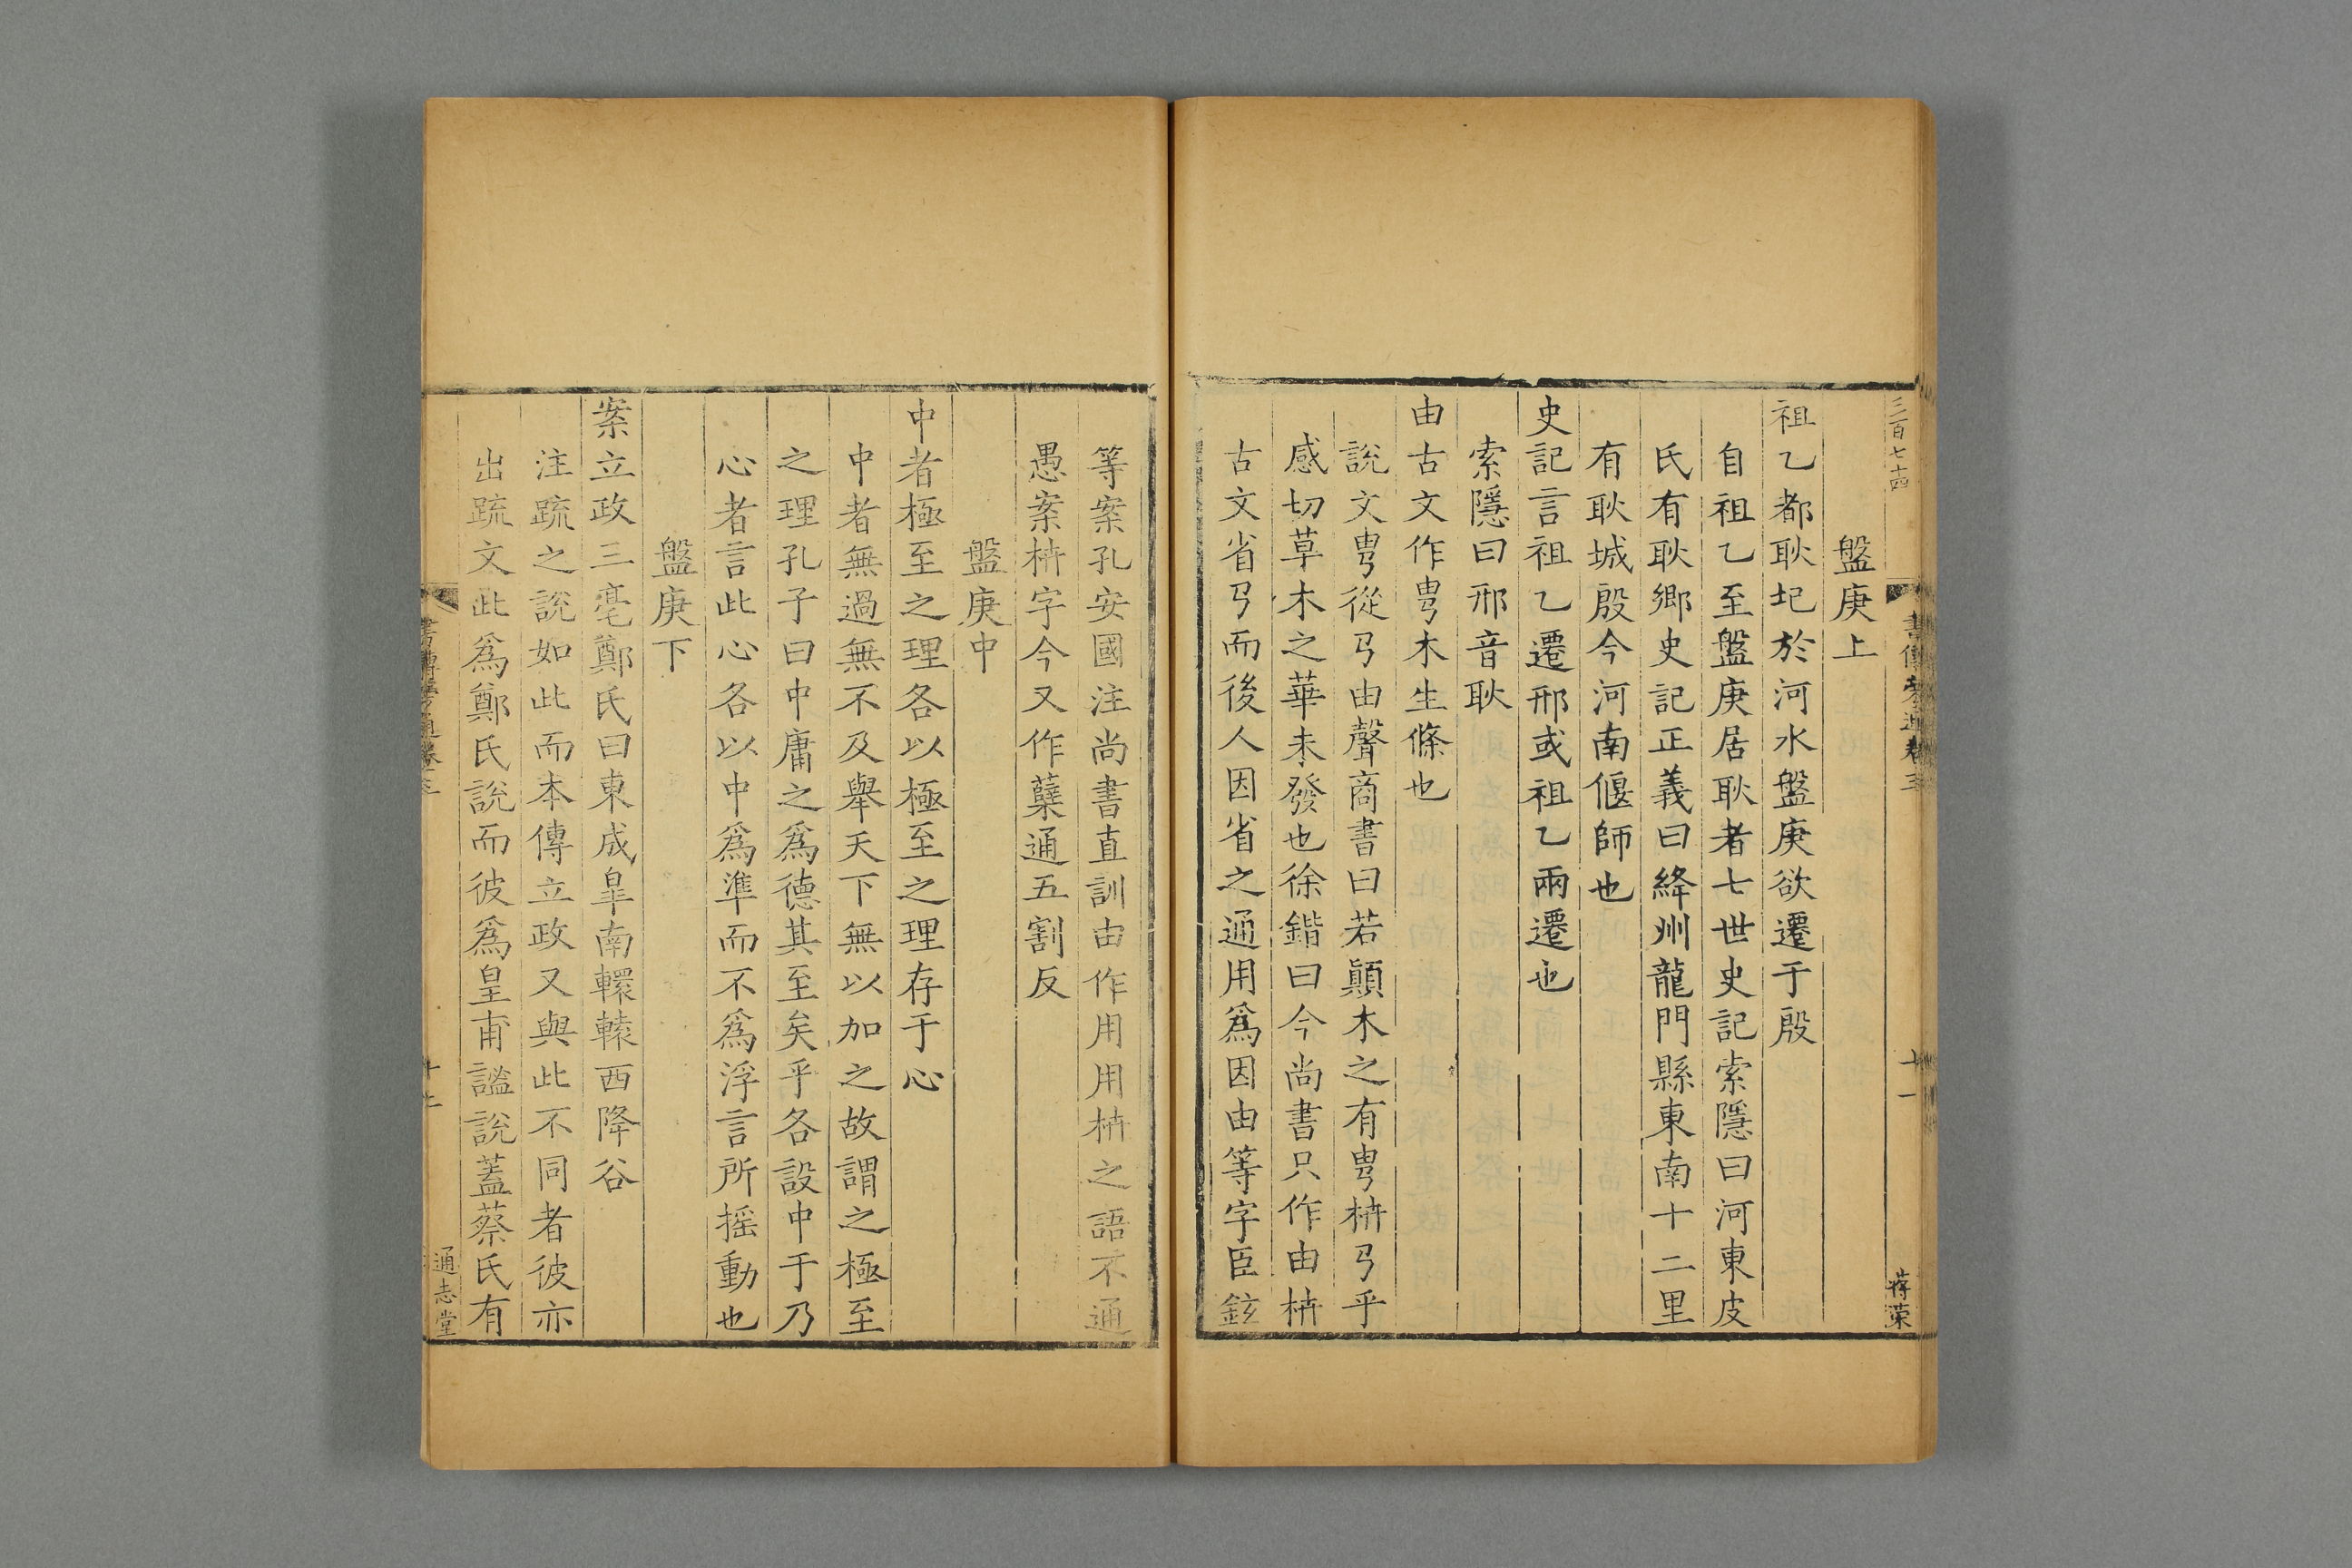 三百七十四
蔣榮
盤庚上
祖乙都耿圮於河水盤庚欲遷于殷
自祖乙至盤庚居耿者七世史記索隱曰河東皮
氏有耿鄉史記正義曰絳州龍門縣東南十二里
有耿城殷今河南偃師也
史記言祖乙遷邢或祖乙兩遷也
索隱曰邢音耿
由古文作㽕木生條也
說文㽕從𢎘由聲商書曰若顛木之有㽕枿𢎘乎
感切草木之華未發也徐鍇曰今尚書只作由枿
古文省𢎘而後人因省之通用爲因由等字臣鉉
等案孔安國注尚書直訓由作用用枿之語不通
愚案枿字今又作蘖通五割反
盤庚中
中者極至之理各以極至之理存于心
中者無過無不及舉天下無以加之故謂之極至
之理孔子曰中庸之爲德其至矣乎各設中于乃
心者言此心各以中爲準而不爲浮言所摇動也
盤庚下
案立政三亳鄭氏曰東成皐南轘轅西降谷
注疏之說如此而本傳立政又與此不同者彼亦
出疏文此爲鄭氏說而彼爲皇甫謐說蓋蔡氏有
通志堂